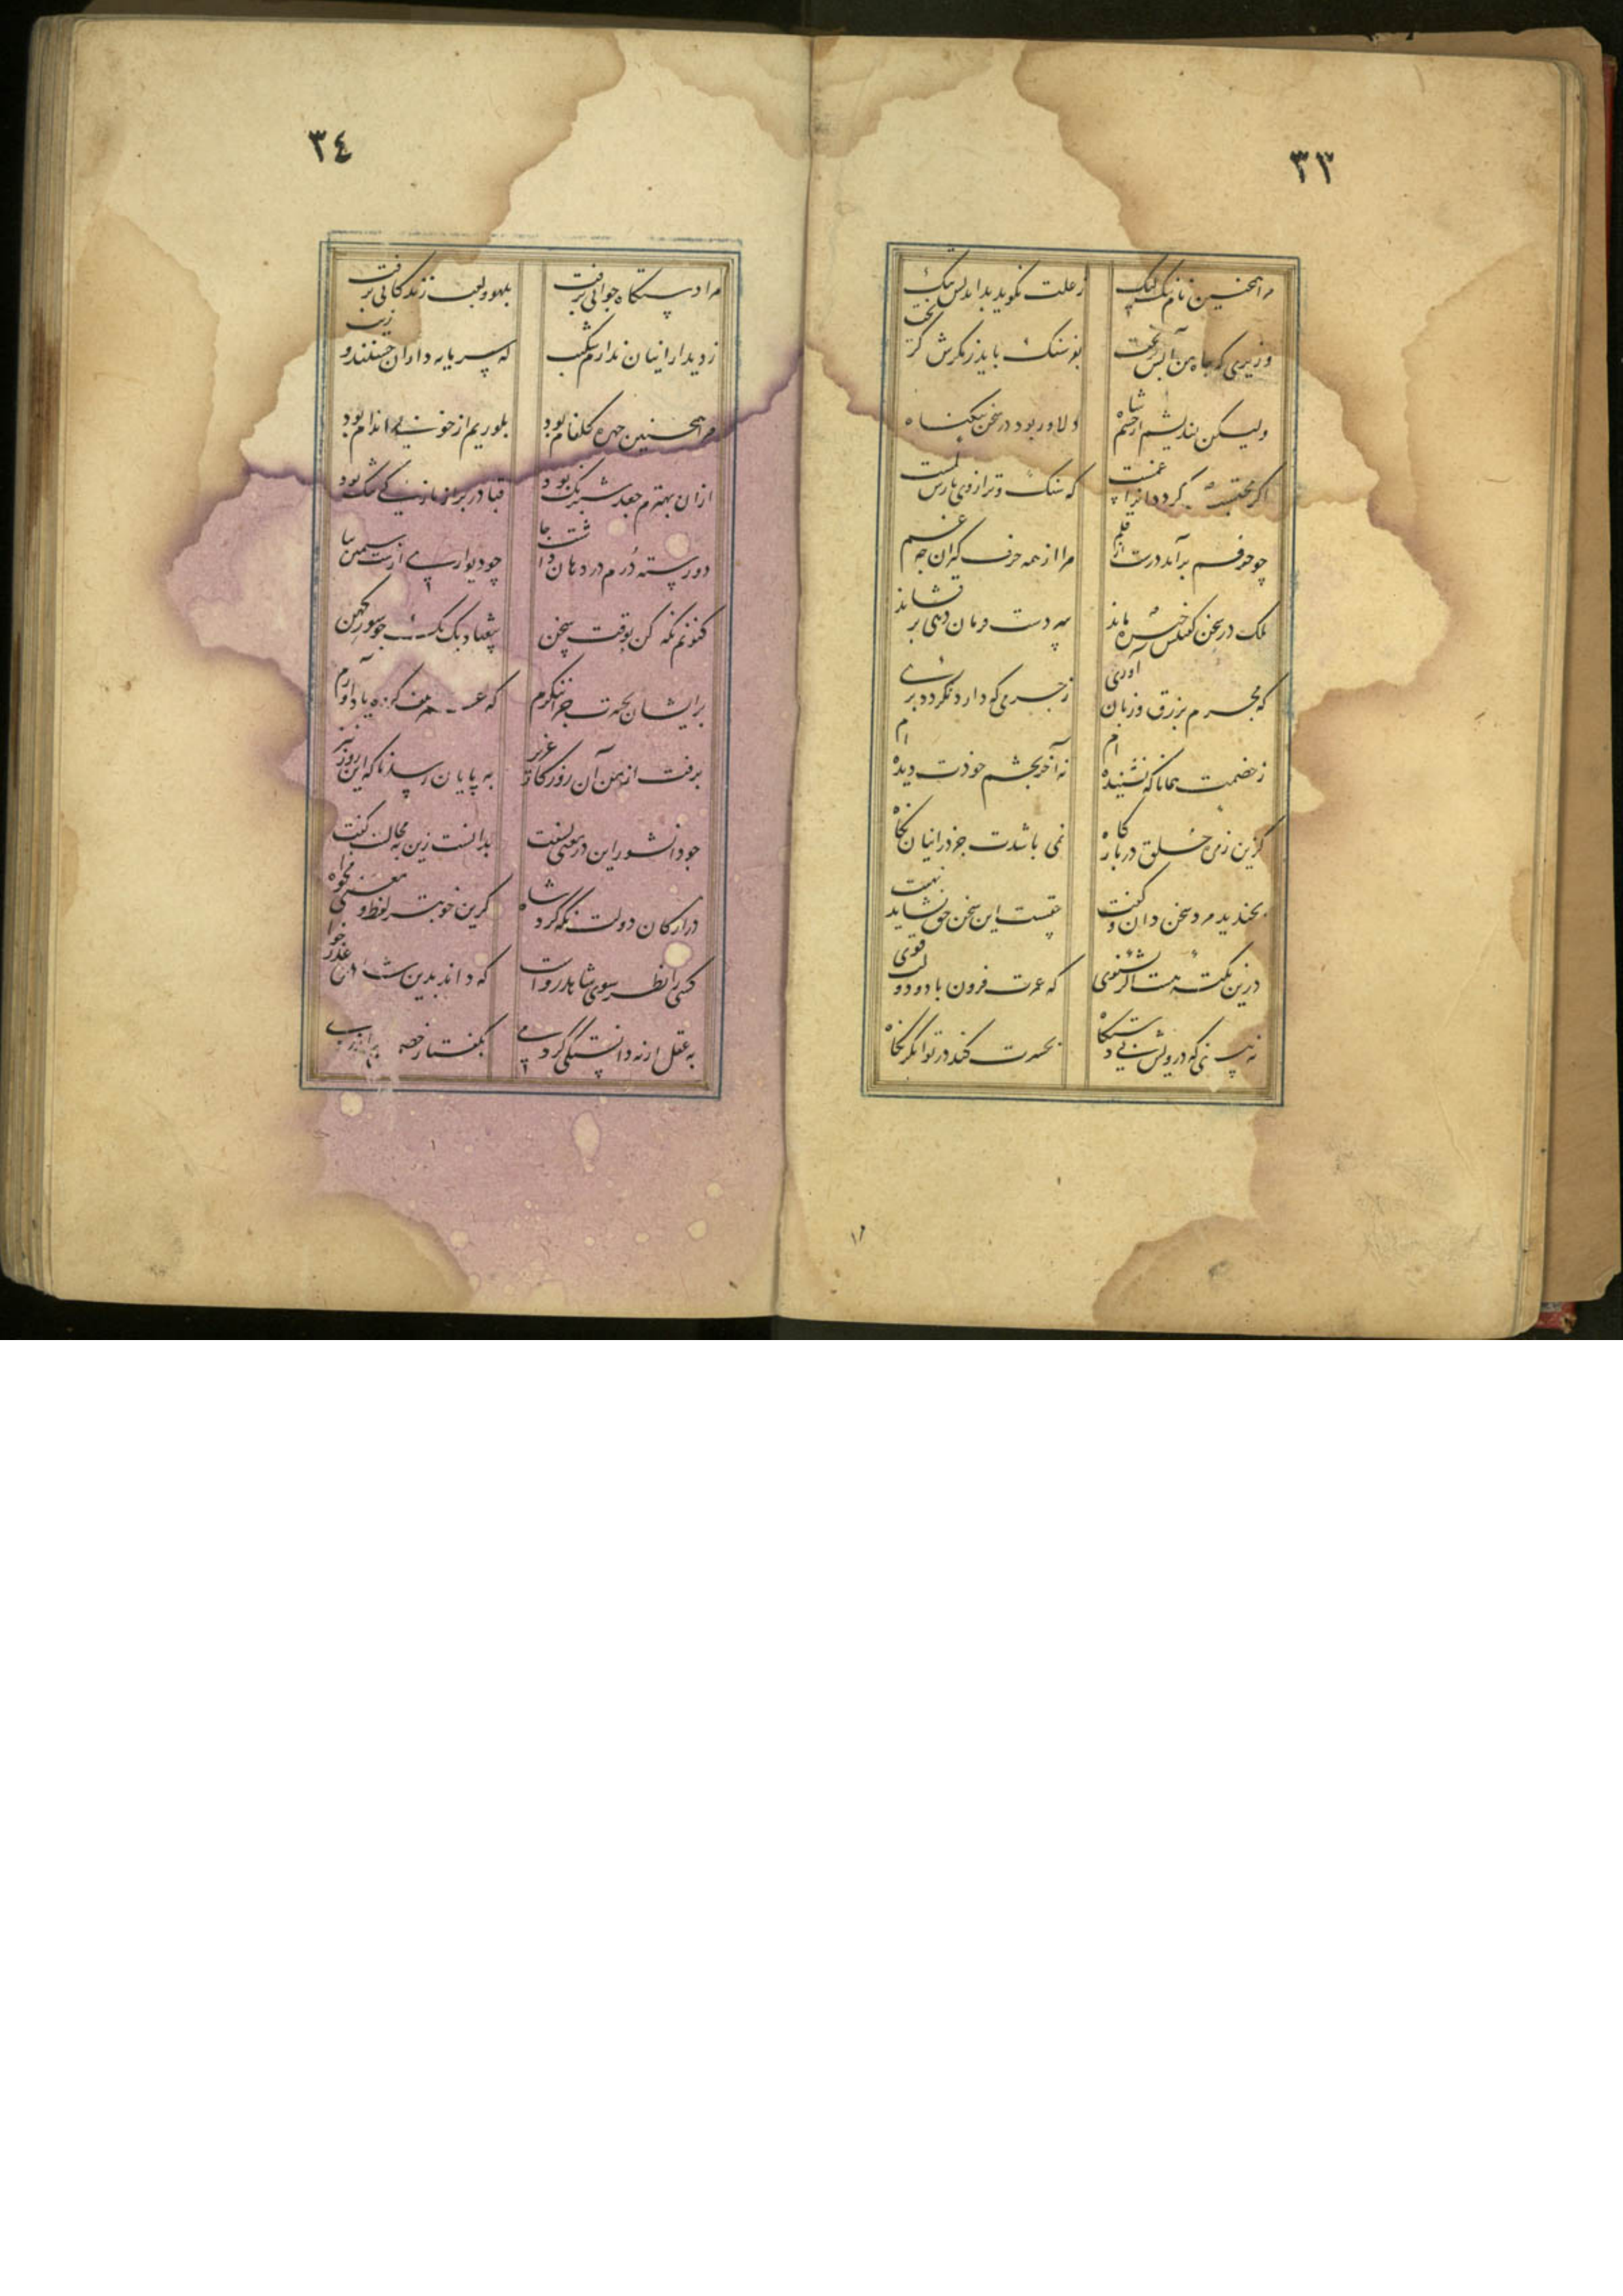 ٣٣
مرا همچنین نام نیک است لیک
ز علت نگوید بداندیش نیک
وزیری که جاه من آبش بریخت
بفرسنگ باید ز مکرش گریخت
ولیکن نیندیشم از خشم شاه
دلاور بود در سخن بیگناه
اگر محتسب گردد آنرا غمست
که سنگ و ترازوی بارش کمست
چو حرفم برآید درست از قلم
مرا از همه حرف گیران چه غم
ملک در سخن گفتنش خیره ماند
سر دست فرمان دهی برفشاند
که مجرم بزرق و زبان آوری
ز جرمی که دارد نگردد بری
ز خصمت همانا که نشنیده ام
نه آخر بچشم خودت دیده ام
کزین زمره خلق در بارگاه
نمی باشدت جز در اینان نگاه
بخندید مرد سخن دان و گفت
حقست این سخن حق نشاید نهفت
درین نکته هست اگر بشنوی
که عمرت فزون باد و دولت قوی
نه بینی که درویش بی دستگاه
بحسرت کند در توانگر نگاه
٣٤
مرا دستگاه جوانی برفت
بلهو و لعب زندگانی برفت
ز دیدار اینان ندارم شکیب
که سرمایه داران حسنند و زیب
مرا همچنین چهره گلفام بود
بلورینم از خوبی اندام بود
ازان بهترم جعد شبرنگ بود
قبا در بر از نازکی تنگ بود
دو رسته درم در دهان داشت جا
چو دیواری از خشت سیمین بپا
کنونم نگه کن بوقت سخن
بیفتاد یک یک چو سور کهن
در ایشان بحسرت چرا ننگرم
که عمر تلف کرده یاد آورم
برفت از من آن روزگار عزیز
به پایان رسد ناگه این روز نیز
چو دانشور این در معنی بسفت
بدانست زین به محالست گفت
در ارکان دولت نگه کرد شاه
کزین خوبتر لفظ و معنی مخواه
کسی را نظر سوی شاهد رواست
که داند بدین شاهدی عذر خواست
به عقل ار نه دانستگی کردمی
بگفتار خصمش بیازردمی